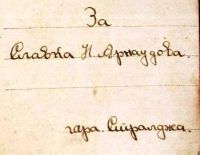 За
Славка Н. Арнаудова.
гара. Стралджа.